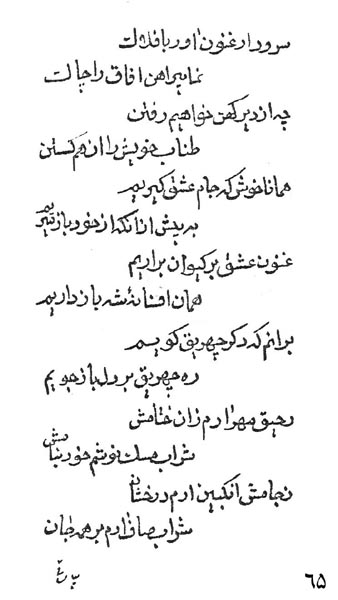 سرود ارغنون آور بافلاك
نما پیراهن آفاق را چاك
چه از دیر کهن خواهیم رفتن
طناب خویش را از هم گسستن
همانا خوش که جام عشق گیریم
به پیش از آنکه از خود باز
غنون عشق بر کیوان برآریم
همان افسانهٔ شه باز داریم
برانم که دگر چهریق گویم
ره چهریق بر دل باز جویم
رحیق مهر آرم زان ختامش
شراب مسك نوشم خود
ز جامش انگبین آرم درخشان
شراب صاف آرم بر همه جان
۶۵